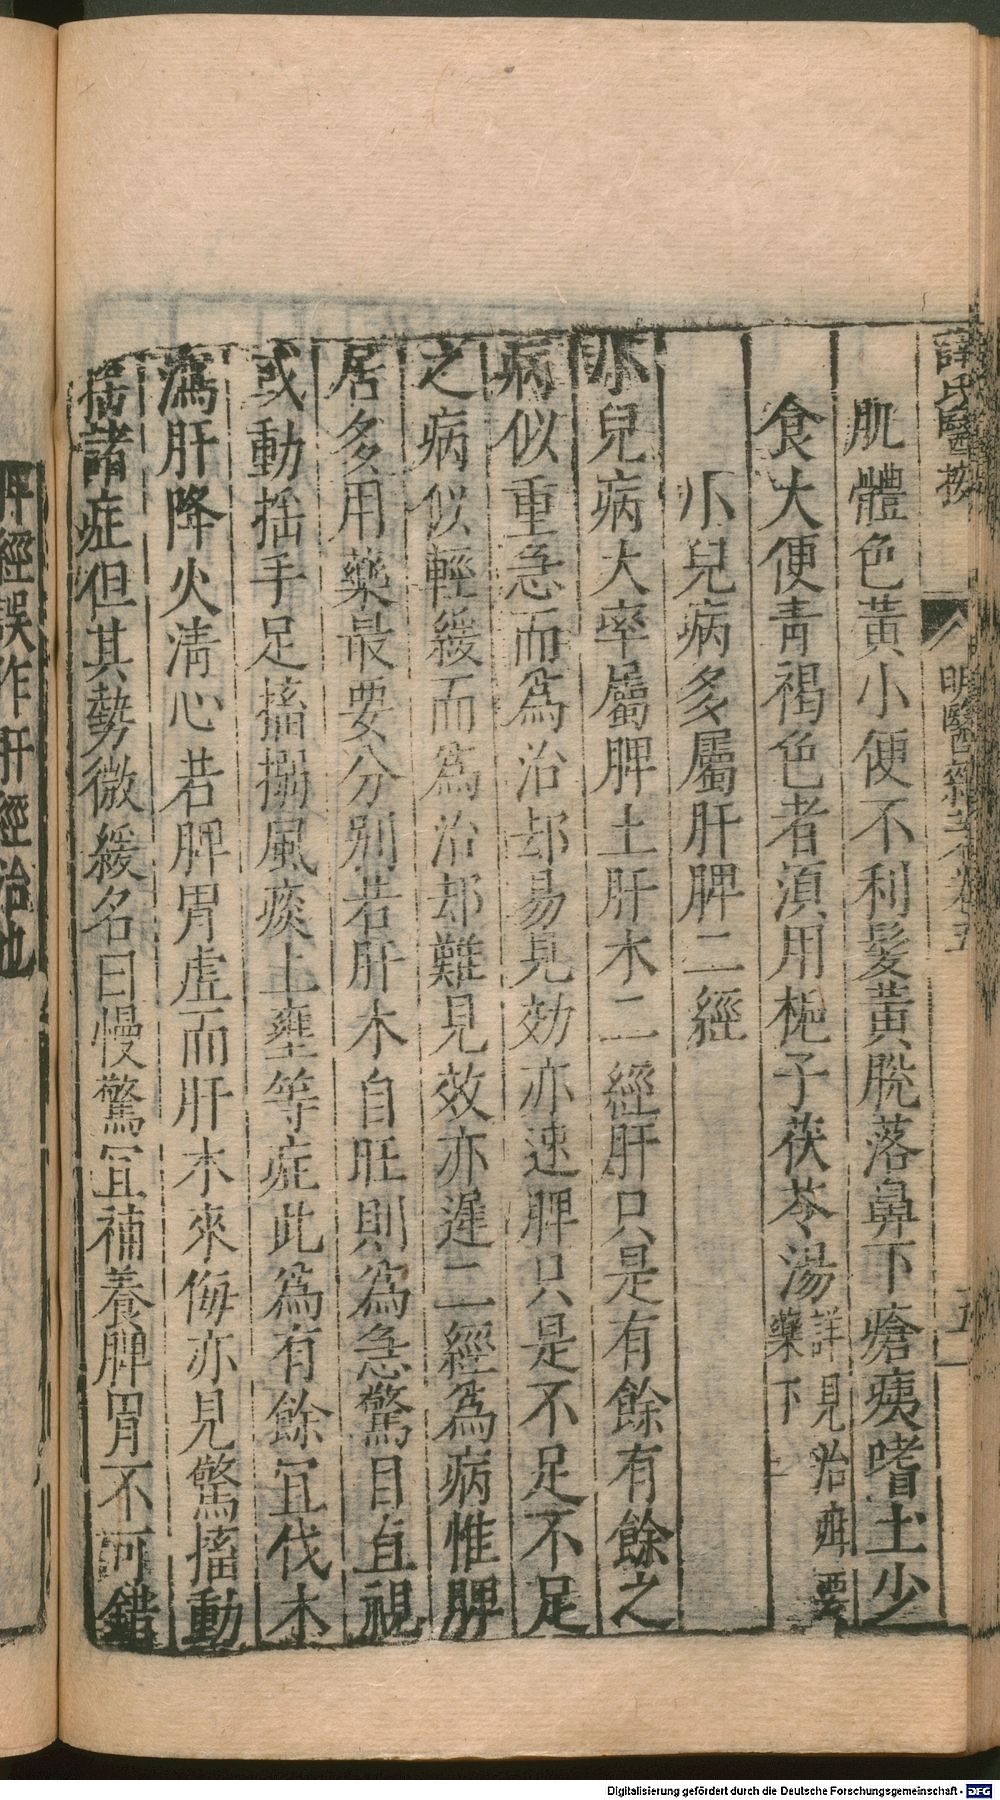 薛氏醫按
明醫雜著卷五
五
肌體色黃小便不利髮黃脫落鼻下瘡痍嗜土少
食大便青褐色者湏用梔子茯苓湯詳見治疳要藥下
小兒病多屬肝脾二經
小兒病大率屬脾土肝木二經肝只是有餘有餘之
病似重急而為治却易見効亦速脾只是不足不足
之病似輕緩而為治却難見效亦遲二經為病惟脾
居多用藥最要分別若肝木自旺則為急驚目直視
或動揺手足搐搦風痰上壅等症此為有餘宜伐木
瀉肝降火淸心若脾胃虛而肝木來侮亦見驚搐動
搐諸症但其勢微緩名曰慢驚宜補養脾胃不可錯
肝經誤作肝經治也
Digitalisierung gefördert durch die Deutsche Forschungsgemeinschaft - DFG